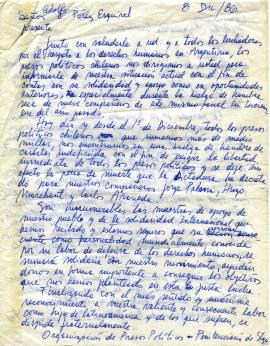 Adolfo
Señor Pérez Esquivel 8 Dic/86
presente
Junto con saludarle a ud. y a todos los luchadores
por el respeto a los derechos humanos en Argentina, los
presos políticos chilenos nos dirigimos a usted para
informarle de nuestra situación actual con el fin de
contar con su solidaridad y apoyo como en oportunidades
anteriores, especialmente durante la huelga de hambre
de nueve compañeros de este mismo penal en
del año pasado.
Hoy día y desde el 1º de Diciembre, todos los presos
políticos chilenos que sumamos más de medio
millar, nos encontramos en una huelga de hambre de
carácter indefinida con el fin de exigir la libertad
inmediata de todos los presos políticos y se deje sin
efecto la pena de muerte que la dictadura ha decreta-
do para nuestros compañeros Jorge Palma, Hugo
Marchant y Carlos Araneda.
Son innumerables las muestras de apoyo de
nuestro pueblo y de la solidaridad internacional que
hemos recibido y estamos seguros que su
como personalidad mundialmente conocida
por su labor de defensa de los derechos humanos, se
solidaria con nuestro movimiento, ayudán-
donos en forma importante a conseguir los objetivos
que nos hemos planteado en esta justa lucha.
Finalizando con el más sentido y
reconocimiento a vuestra valiente y consecuente labor
como hijo de Latinoamérica y de los que sufren, se
despide fraternalmente
Organización de Presos Políticos - Penitenciaría de Stgo